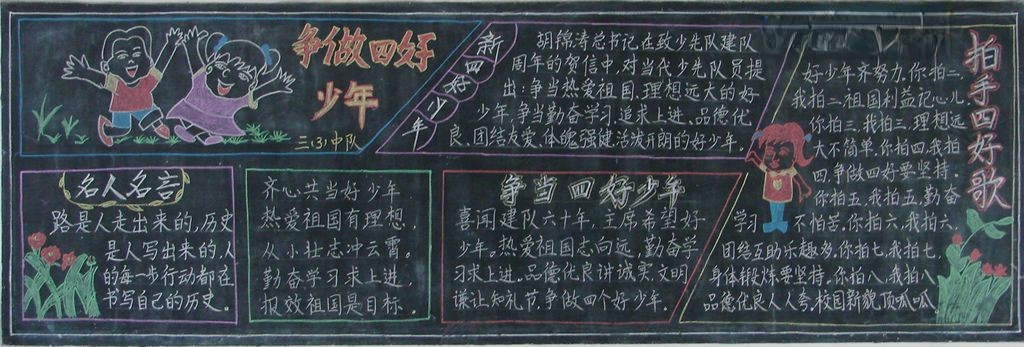 争做四好
少年
三(3)中队
新四好少年
胡锦涛总书记在致少先队建队
周年的贺信中,对当代少先队员提
出:争当热爱祖国,理想远大的好
少年,争当勤奋学习,追求上进、品德优
良、团结友爱、体魄强健,活泼开朗的好少年.
名人名言
路是人走出来的,历史
是人写出来的,人
的每一步行动都在
书写自己的历史.
齐心共当好少年
热爱祖国有理想,
从小壮志冲云霄。
勤奋学习求上进,
报效祖国是目标.
争当四好少年
喜闻建队六十年,主席希望好
少年。热爱祖国志向远,勤奋学
习求上进。品德优良讲诚实,文明
谦让知礼节,争做四个好少年.
拍手四好歌
好少年齐努力,你拍二,
我拍二,祖国利益记心儿
你拍三,我拍三,理想远
大不简单.你拍四,我拍
四,争做四好要坚持.
你拍五,我拍五,勤奋
学习不怕苦.你拍六,我拍六,
团结互助乐趣多.你拍七,我拍七,
身体锻炼要坚持.你拍八,我拍八
品德优良人人夸,校园新貌顶呱呱